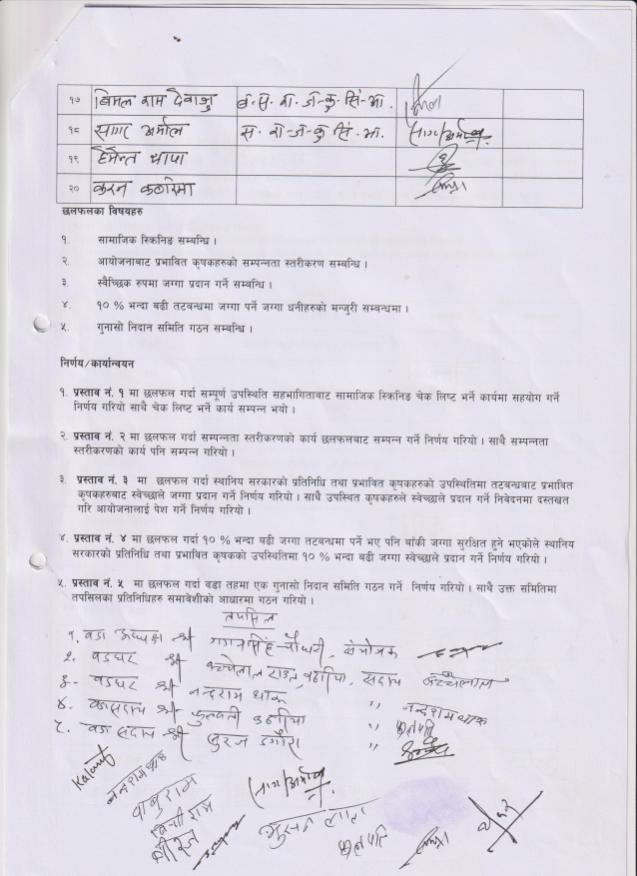 १७ बिमल राम देवाजु ब. स. रा. ज. कु. सिं. आ.
१८ सागर अर्माल स. रा. ज. कु. सिं. आ.
१९ हेमन्त थापा
२० करन कठरिया
छलफलका विषयहरु
१. सामाजिक स्किनिड सम्बन्धि ।
२. आयोजनाबाट प्रभावित कृषकहरुको सम्पन्नता स्तरीकरण सम्बन्धि ।
३. स्वैच्छिक रुपमा जग्गा प्रदान गर्ने सम्बन्धि ।
४. १० % भन्दा बढी तटबन्धमा जग्गा पर्ने जग्गा धनीहरुको मन्जुरी सम्बन्धमा ।
५. गुनासो निदान समिति गठन सम्बन्धि ।
निर्णय/कार्यान्वयन
१. प्रस्ताव नं. १ मा छलफल गर्दा सम्पूर्ण उपस्थिति सहभागिताबाट सामाजिक स्किनिड चेक लिष्ट भर्ने कार्यमा सहयोग गर्ने
निर्णय गरियो साथै चेक लिष्ट भर्ने कार्य सम्पन्न भयो ।
२. प्रस्ताव नं. २ मा छलफल गर्दा सम्पन्नता स्तरीकरणको कार्य छलफलबाट सम्पन्न गर्ने निर्णय गरियो । साथै सम्पन्नता
स्तरीकरणको कार्य पनि सम्पन्न गरियो ।
३. प्रस्ताव नं. ३ मा छलफल गर्दा स्थानिय सरकारको प्रतिनिधि तथा प्रभावित कृषकहरुको उपस्थितिमा तटबन्धबाट प्रभावित
कृषकहरुबाट स्वेच्छाले जग्गा प्रदान गर्ने निर्णय गरियो । साथै उपस्थित कृषकहरुले स्वेच्छाले प्रदान गर्ने निवेदनमा दस्तखत
गरि आयोजनालाई पेश गर्ने निर्णय गरियो ।
४. प्रस्ताव नं. ४ मा छलफल गर्दा १० % भन्दा बढी जग्गा तटबन्धमा पर्ने भए पनि बाँकी जग्गा सुरक्षित हुने भएकोले स्थानिय
सरकारको प्रतिनिधि तथा प्रभावित कृषकको उपस्थितिमा १० % भन्दा बढी जग्गा स्वेच्छाले प्रदान गर्ने निर्णय गरियो ।
५. प्रस्ताव नं. ५ मा छलफल गर्दा वडा तहमा एक गुनासो निदान समिति गठन गर्ने निर्णय गरियो । साथै उक्त समितिमा
तपसिलका प्रतिनिधिहरु समावेशीको आधारमा गठन गरियो ।
तपसिल
१. वडा अध्यक्ष श्री सिंह चौधरी, संयोजक
२. वडघर श्री सदस्य
३. वडघर श्री नन्दराम थारू " नन्दराम थारू
४. वडा सदस्य श्री फुलपती " फुलपति
५. वडा सदस्य श्री सुरज डगौरा "
नन्दराम थारू
बाबुराम
सागर अर्माल
फुलपति